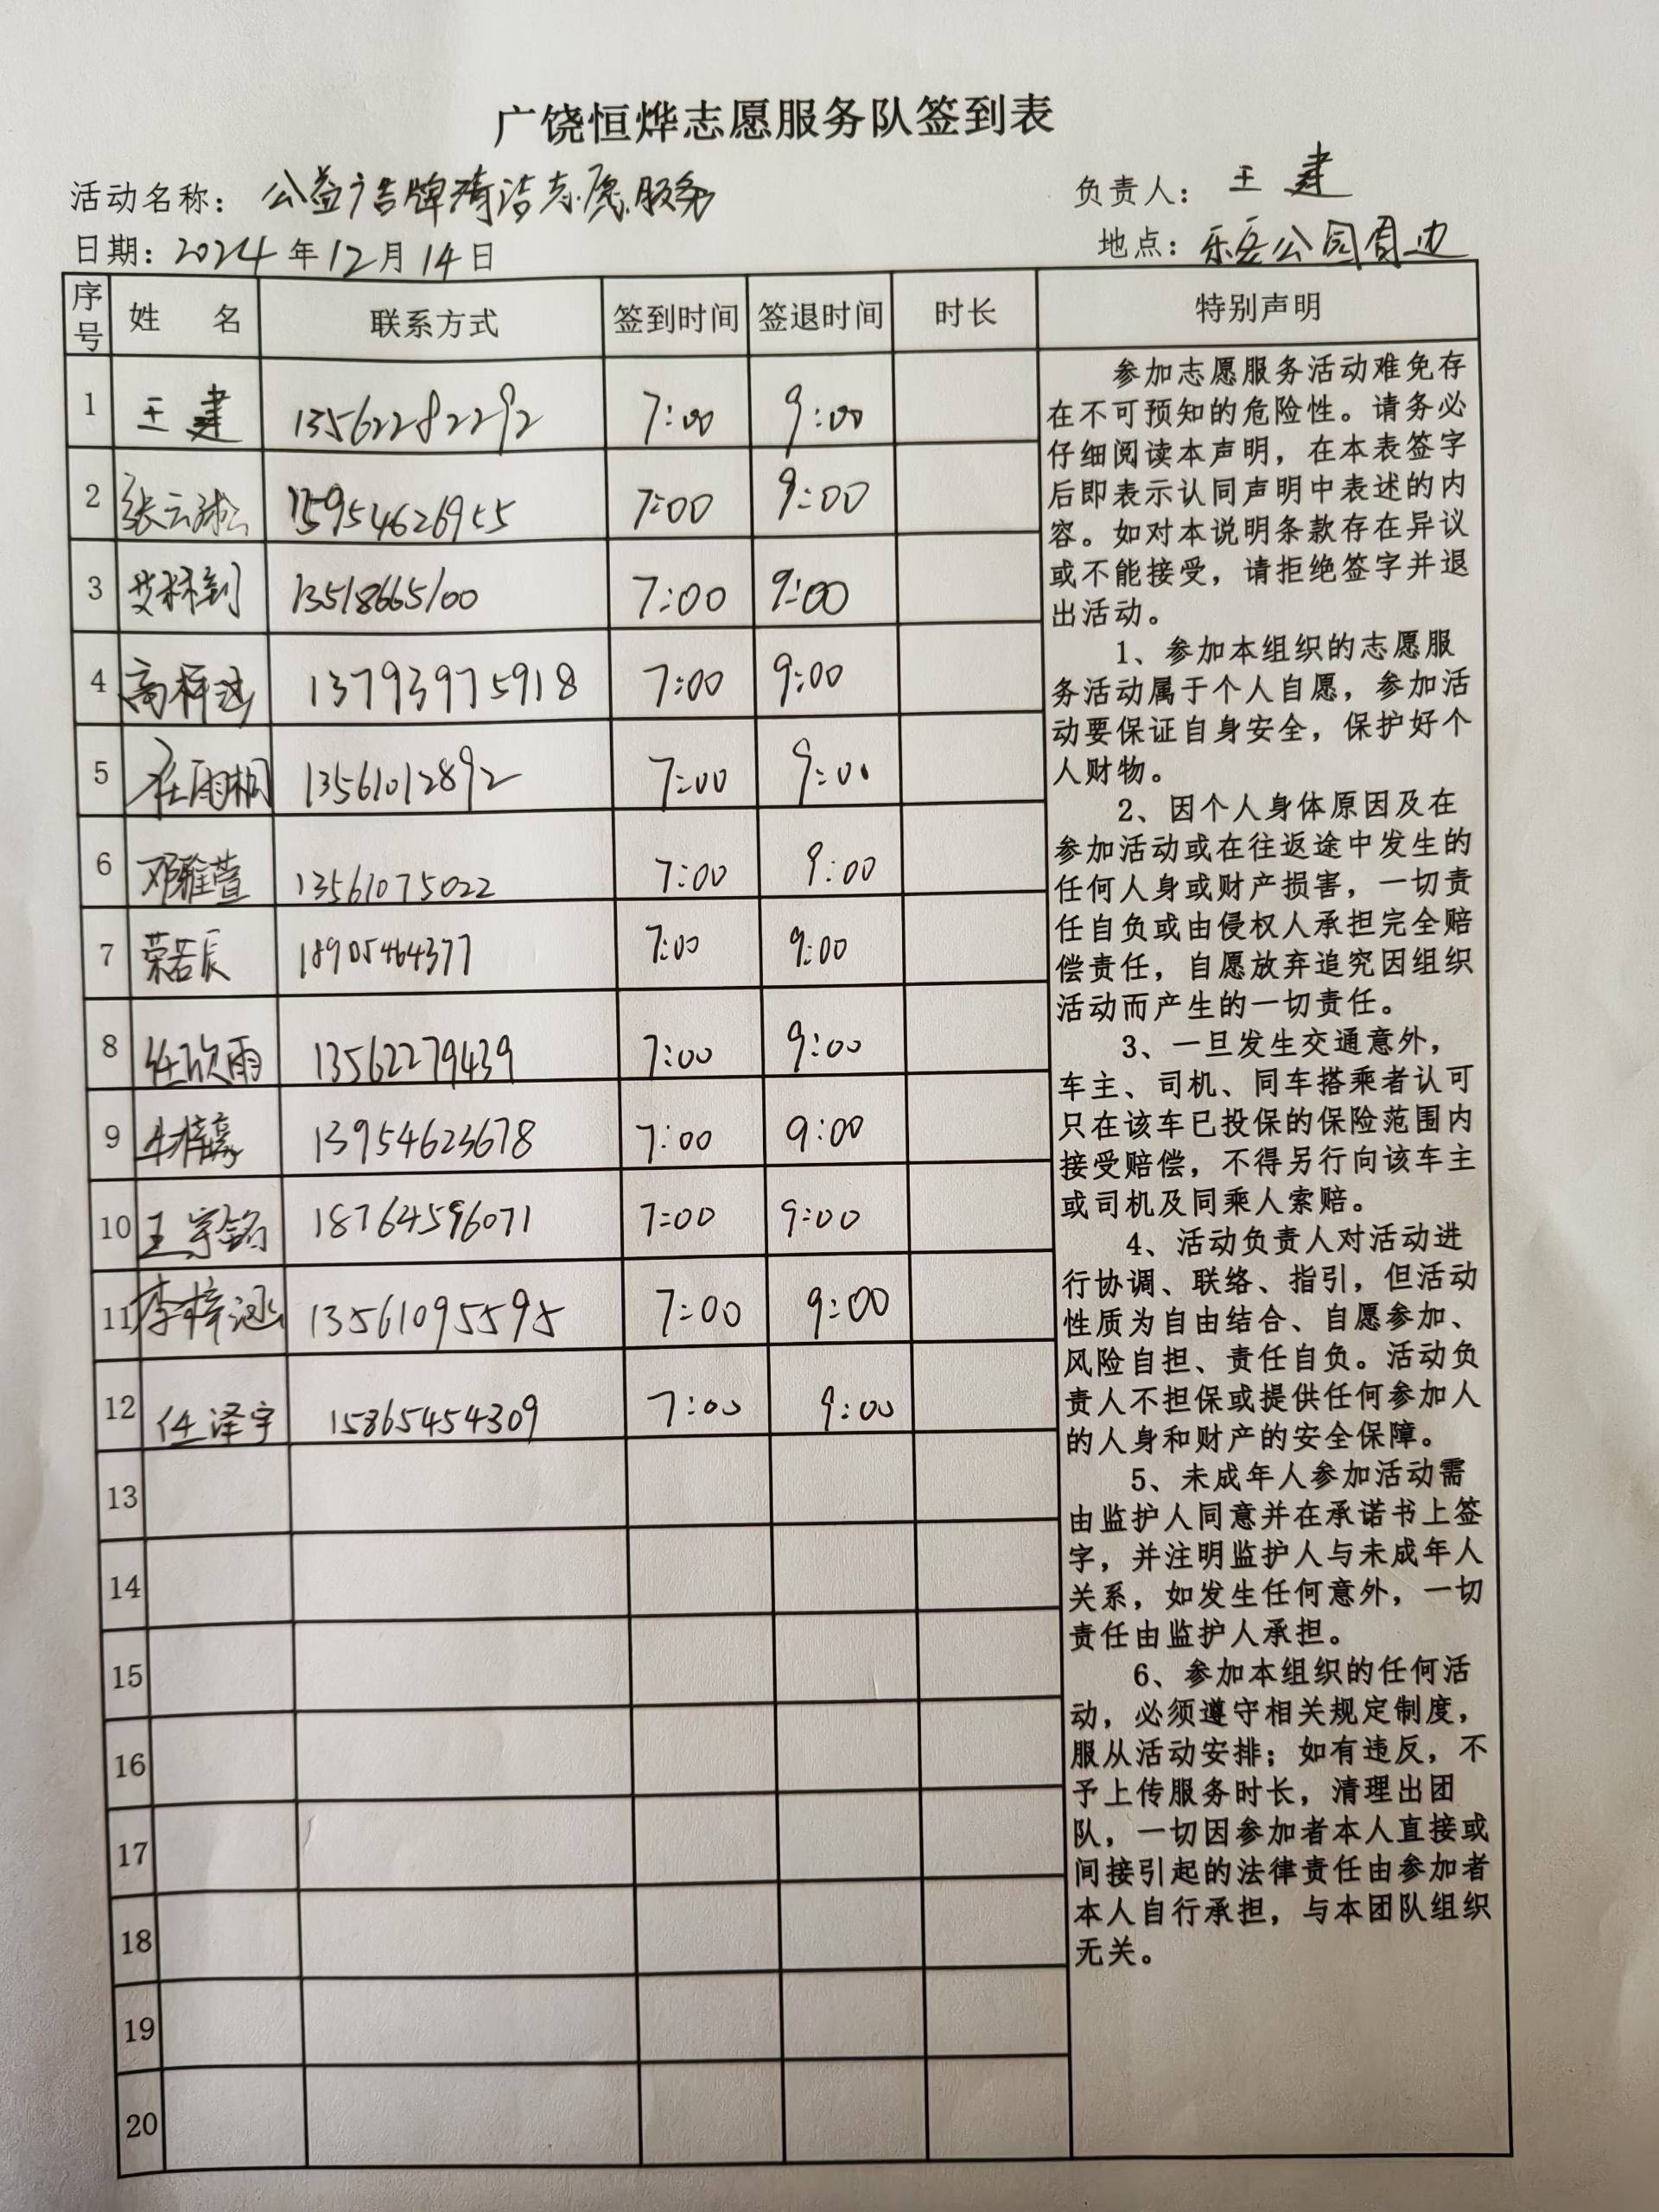 广饶恒烨志愿服务队签到表
活动名称：公益广告牌清洁志愿服务 负责人：王建
日期：2024年12月14日 地点：乐安公园周边
序号 姓名 联系方式 签到时间 签退时间 时长 特别声明
1 王建 13562282292 7:00 9:00
2 张云淞 15954626955 7:00 9:00
3 13518665100 7:00 9:00
4 高梓 13793975918 7:00 9:00
5 任雨桐 13561012892 7:00 9:00
6 邓雅萱 13561075022 7:00 9:00
7 荣若辰 18905464377 7:00 9:00
8 任欣雨 13562279439 7:00 9:00
9 牛梓豪 13954623678 7:00 9:00
10 王宇铭 18764596071 7:00 9:00
11 李梓涵 13561095595 7:00 9:00
12 任泽宇 15865454309 7:00 9:00
13
14
15
16
17
18
19
20
参加志愿服务活动难免存
在不可预知的危险性。请务必
仔细阅读本声明，在本表签字
后即表示认同声明中表述的内
容。如对本说明条款存在异议
或不能接受，请拒绝签字并退
出活动。
1、参加本组织的志愿服
务活动属于个人自愿，参加活
动要保证自身安全，保护好个
人财物。
2、因个人身体原因及在
参加活动或在往返途中发生的
任何人身或财产损害，一切责
任自负或由侵权人承担完全赔
偿责任，自愿放弃追究因组织
活动而产生的一切责任。
3、一旦发生交通意外，
车主、司机、同车搭乘者认可
只在该车已投保的保险范围内
接受赔偿，不得另行向该车主
或司机及同乘人索赔。
4、活动负责人对活动进
行协调、联络、指引，但活动
性质为自由结合、自愿参加、
风险自担、责任自负。活动负
责人不担保或提供任何参加人
的人身和财产的安全保障。
5、未成年人参加活动需
由监护人同意并在承诺书上签
字，并注明监护人与未成年人
关系，如发生任何意外，一切
责任由监护人承担。
6、参加本组织的任何活
动，必须遵守相关规定制度，
服从活动安排；如有违反，不
予上传服务时长，清理出团
队，一切因参加者本人直接或
间接引起的法律责任由参加者
本人自行承担，与本团队组织
无关。